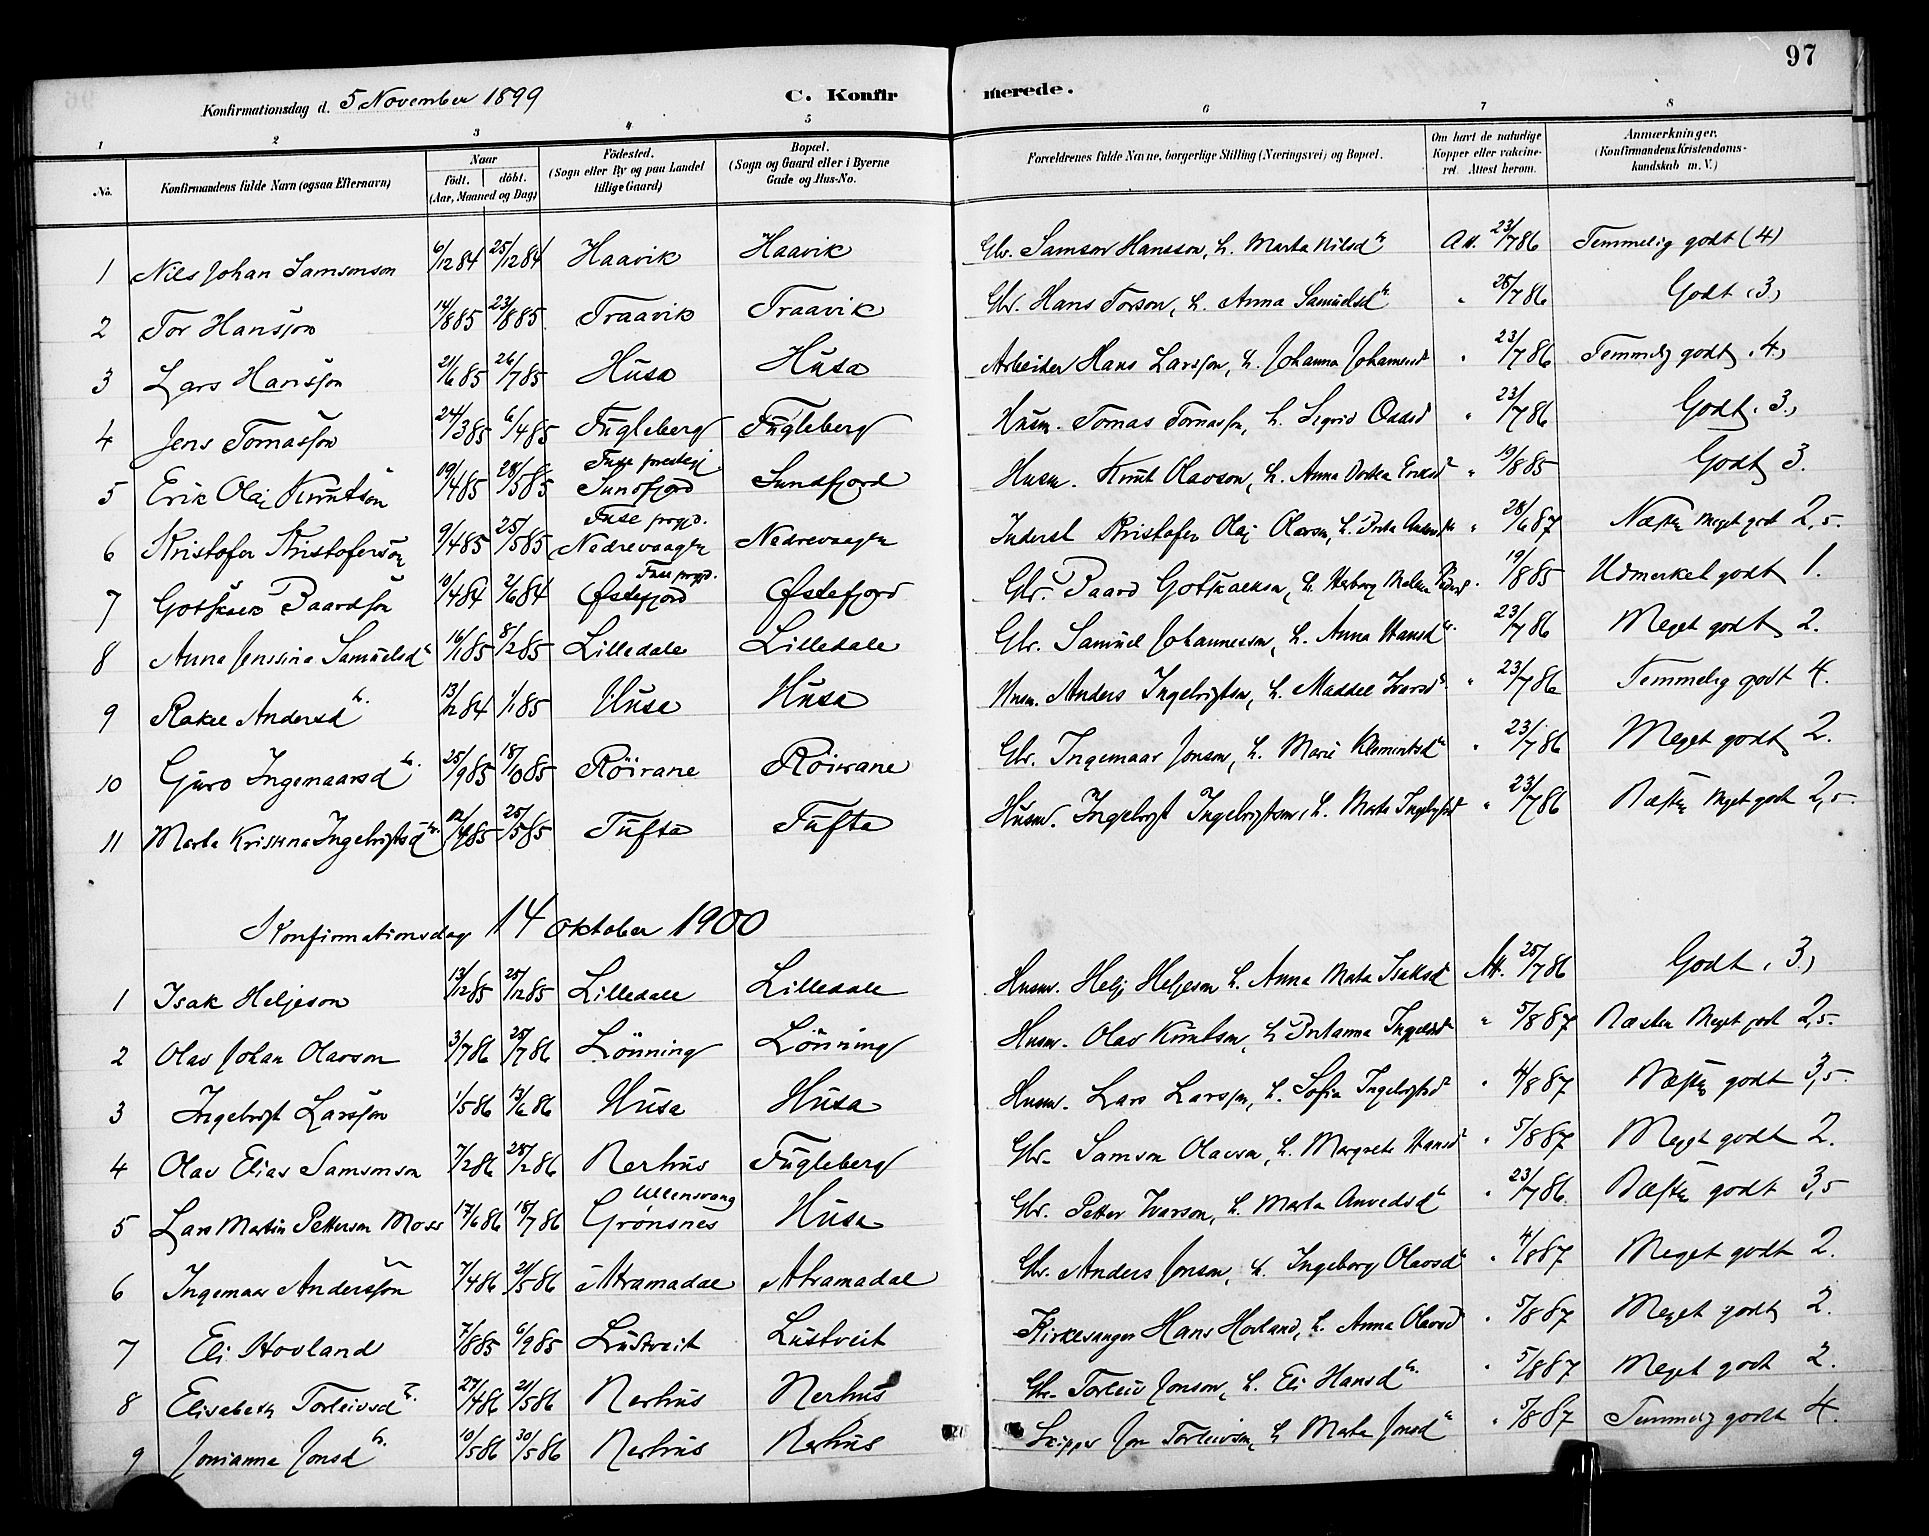 97
Konfirmationsdag d. 5 November 1899
C. Konfirmerede.
1 2 3 4 5 6 7 8
No. Konfirmandens fulde Navn (ogsaa Efternavn) Naar født. døbt. (Aar, Maaned og Dag) Fødested. (Sogn eller By og paa Landet tillige Gaard) Bopæl. (Sogn og Gaard eller i Byerne Gade og Hus-No. Forældrenes fulde Navne, borgerlige Stilling (Næringsvei) og Bopæl. Om havt de naturlige Kopper eller vaccineret. Attest herom. Anmærkninger. (Konfirmandens Kristendomskundskab m. V.)
1 Nils Johan Samsonson 6/12 84 25/12 84 Haavik Haavik Gbr. Samson Hansson, h. Marta Nilsdr Att. 23/7 86 Temmelig godt (4)
2 Tor Hansson 14/8 85 23/8 85 Traavik Traavik Gbr. Hans Torson, h. Anna Samuelsdr " 28/7 86 Godt (3)
3 Lars Hansson 21/6 85 26/7 85 Husa Husa Arbeider Hans Larsson, h. Johanna Johannesd " 23/7 86 Temmelig godt (4)
4 Jens Tomasson 24/3 85 6/4 85 Fugleberg Fugleberg Husm. Tomas Tomasson, h. Sigrid Odasd " 23/7 86 Godt (3)
5 Erik Olai Knutson 19/4 85 28/5 85 Fuse prestegj Sundfjord Sundfjord Husm. Knut Olavson, h. Anna Dortea Eriksd " 19/8 85 Godt 3.
6 Kristofer Kristoferson 9/4 85 25/5 85 Fuse prgjd. Nedrevaagen Nedrevaagen Inderst Kristofer Olai Olavson, h. " 28/6 87 Næsten Meget godt 2,5.
7 Gotskalk Baardson 10/4 84 2/6 84 Fuse prgjd. Østefjord Østefjord Gbr. Baard Gotskalkson, h. " 19/8 85 Udmerket godt 1.
8 Anna Jenssine Samuelsdr 16/1 85 8/2 85 Lilledale Lilledale Gbr. Samuel Johannesson, h. Anna Hansdr. " 23/7 86 Meget godt 2.
9 Rakel Andersdr. 13/12 84 1/1 85 Husa Husa Husm. Anders Ingebrigtson, h. Maddel Iversdr " 23/7 86 Temmelig godt 4.
10 Guro Ingemaarsdr. 25/9 85 18/10 85 Röirane Röirane Gbr. Ingemaar Jonson, h. Mari Klementsdr " 23/7 86 Meget godt 2.
11 Marta Kristina Ingebrigtsdr. 12/4 85 25/5 85 Tufta Tufta Husm. Ingebrigt Ingebrigtson, h. Marta Ingebrigtsd " 23/7 86 Næsten Meget godt 2,5.
Konfirmationsdag 14 Oktober 1900
1 Isak Heljeson 13/12 85 25/12 85 Lilledale Lilledale Husm. Helje Heljeson h. Anna Marta Isaksdr Att. 25/7 86 Godt (3)
2 Olav Johan Olavson 3/7 86 25/7 86 Lönning Lönning Husm. Olav Knutson, h. " 5/8 87 Næsten Meget godt 2,5.
3 Ingebrigt Larsson 1/5 86 13/6 86 Husa Husa Husm. Lars Larsson, h. Sofia Ingebrigtsd " 4/8 87 Næsten godt 3,5.
4 Olav Elias Samsonson 7/2 86 28/2 86 Nerhus Fugleberg Gbr. Samson Olavson, h. Margrete Hansdr " 5/8 87 Meget godt 2.
5 Lars Martin Petterson Moss 17/6 86 18/7 86 Ullensvang Grönsnes Husa Gbr. Petter Ivarson, h. Marta Anvedsdr " 23/7 86 Næsten godt 3,5
6 Ingemaar Andersson 7/4 86 21/5 86 Akramadal Akramadal Gbr. Anders Jonson, h. Ingeborg Olavsdr " 4/8 87 Meget godt 2.
7 Eli Hovland 7/8 85 6/9 85 Lustveit Lustveit Kirkesanger Hans Hovland, h. Anna Olavsd " 5/8 87 Meget godt 2.
8 Elisabeth Torleivsdr. 27/4 86 21/5 86 Nerhus Nerhus Gbr. Torleiv Jonson, h. Eli Hansdr. " 5/8 87 Meget godt 2.
9 Jonianna Jonsdr. 10/5 86 30/5 86 Nerhus Nerhus Skipper Jon Torleivson, h. Marta Jonsdr " 5/8 87 Temmelig godt 4.